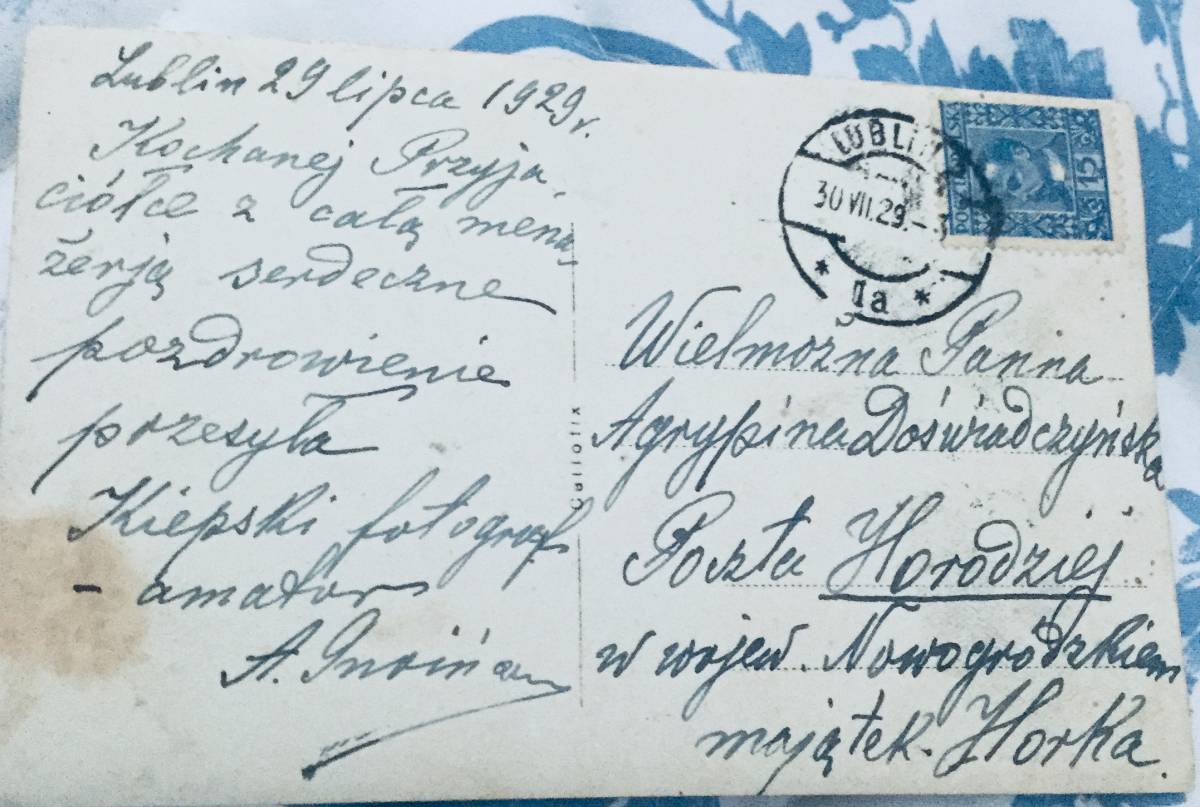 Lublin 29 lipca 1929 r.
Kochanej Przyja
ciółce z całą mena
żerją serdeczne
pozdrowienie
przesyła
Kiepski fotograf
- amator
A.
LUBLIN
30 VII. 29
* *
15
Wielmożna Panna
Agrypina Doświadczyńska
Poczta Horodziej
w wojew. Nowogródzkiem
majątek. Horka.